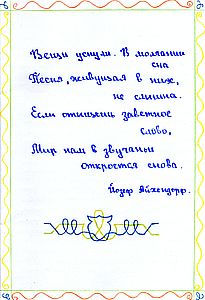 Вещи уснули. В молчании
сна
Песня, живущая в них,
не слышна.
Если отыщешь заветное
слово,
Мир нам в звучаньи
откроется снова.
Йозеф Айхендорф.